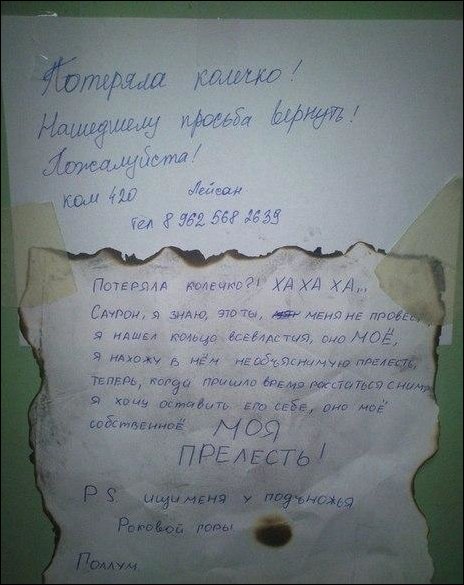 Потеряла колечко!
Нашедшему просьба вернуть!
Пожалуйста!
ком 420 Лейсан
тел 8 962 568 2639
Потеряла колечко?! ХА ХА ХА...
Саурон, я знаю, это ты, меня не провес
я нашел кольцо всевластия, оно МОЁ,
я нахожу в нём необъяснимую прелесть,
теперь, когда пришло время расстаться с ним
я хочу оставить его себе, оно моё
собственноё МОЯ
ПРЕЛЕСТЬ!
P.S. ищи меня у подъножья
Роковой горы.
Поллум